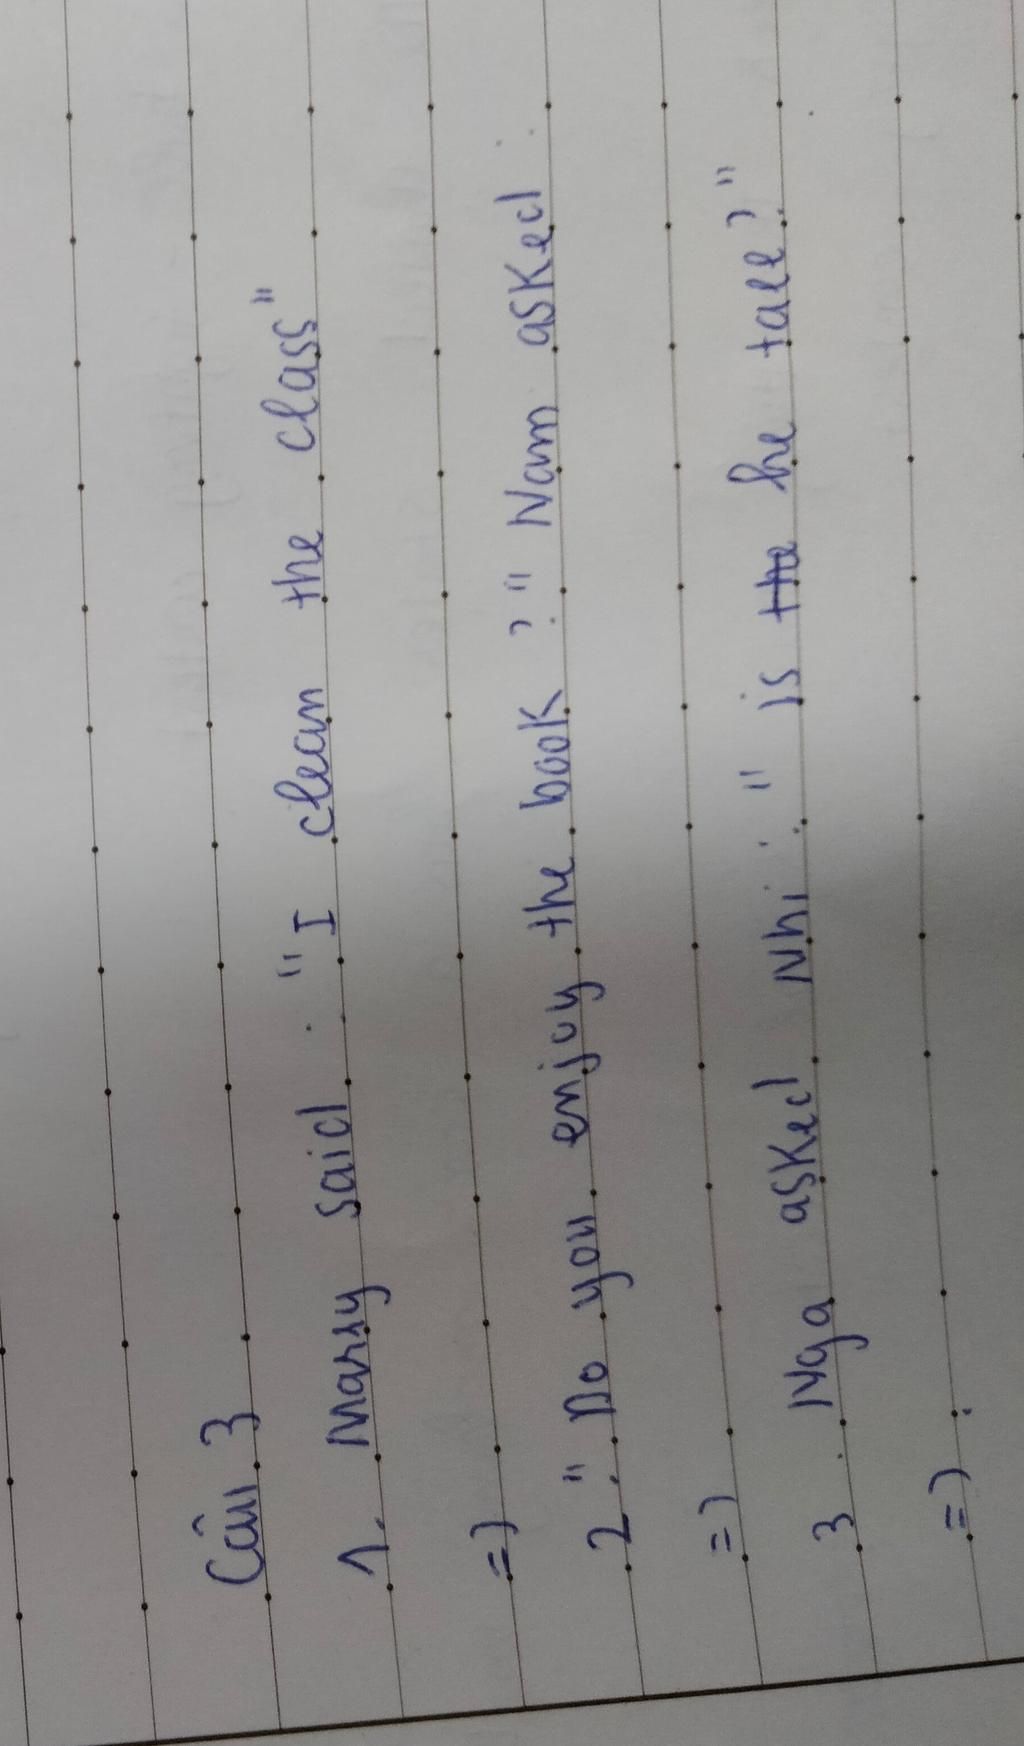 Câu 3
1. Marry said : "I clean the class"
=)
2. "Do you enjoy the book ?" Nam asked .
=)
3. Nga asked Nhi : " is the he tall ? "
=) .